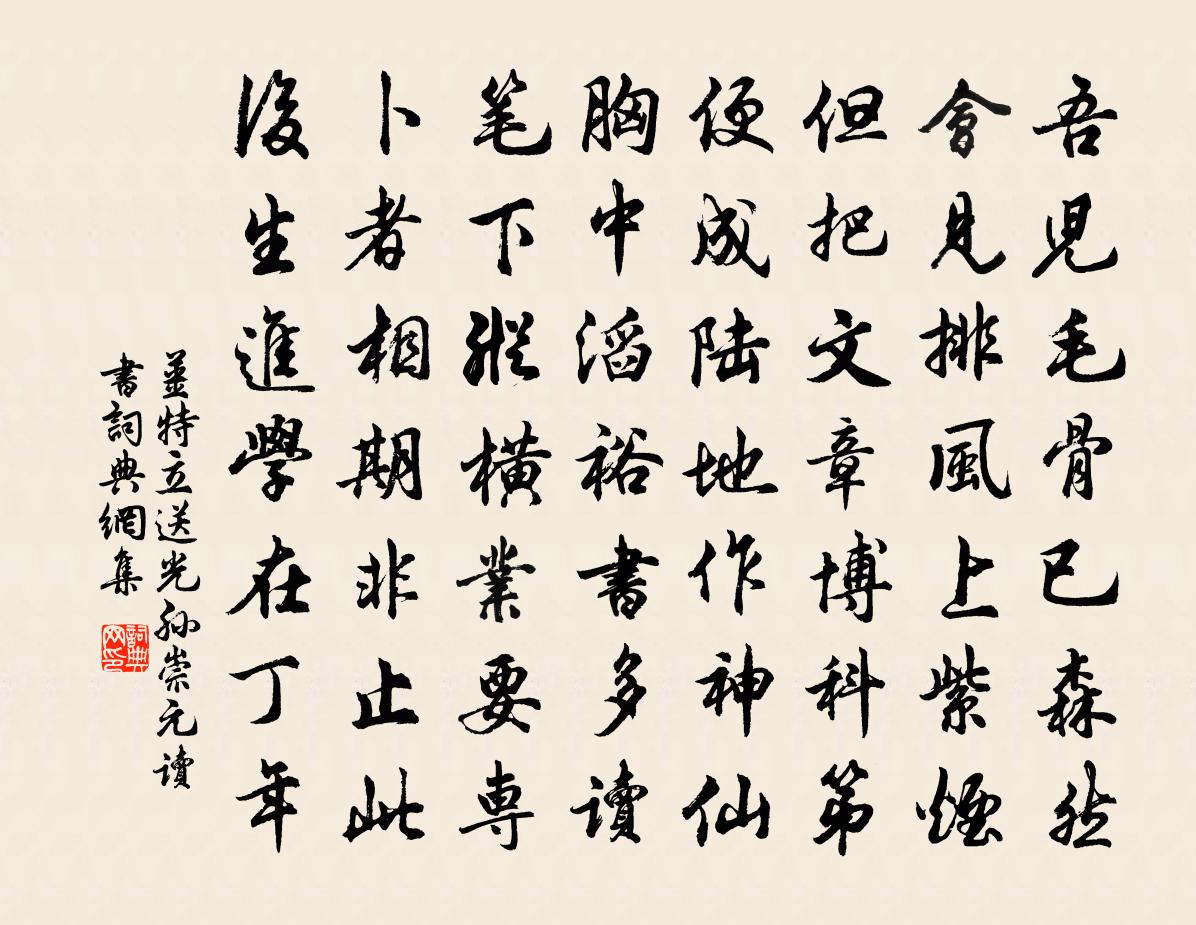 吾児毛骨已森然
會見排風上紫煙
但把文章博科第
便成陆地作神仙
胸中滔裕書多讀
笔下縱横業要専
卜者相期非止此
後生進學在丁年
薑特立送光孙崇元讀
書詞典網集
詞典网印